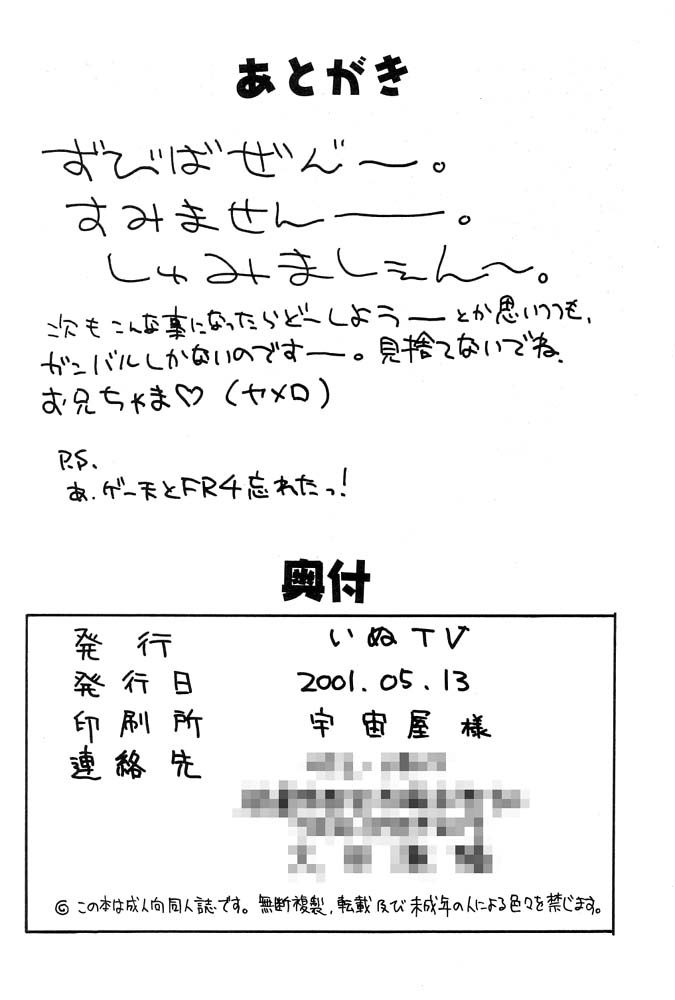 あとがき
ずびばぜんﾞー。
すみませんー。
しゅみましぇん〜。
次もこんな事になったらどーしようーとか思いつつも、
ガンバルしかないのですー。見捨てないでね、
お兄ちゃま♡(ヤメロ)
P.S.
あ、ゲー天とFR4忘れたっ!
奥付
発行 いぬTV
発行日 2001.05.13
印刷所 宇宙屋様
連絡先
© この本は成人向同人誌です。無断複製、転載及び未成年の人による色々を禁じます。